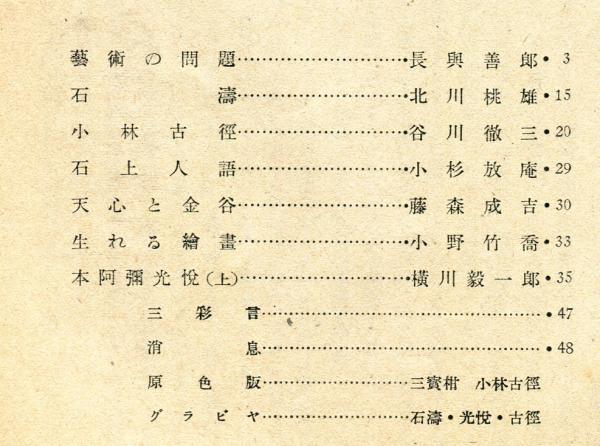 藝術の問題…………長與善郎・3
石濤…………北川桃雄・15
小林古徑…………谷川徹三・20
石上人語…………小杉放庵・29
天心と金谷…………藤森成吉・30
生れる繪畫…………小野竹喬・33
本阿彌光悅(上)…………橫川毅一郎・35
三彩言…………・47
消息…………・48
原色版…………三寶柑 小林古徑
グラビヤ…………石濤・光悅・古徑